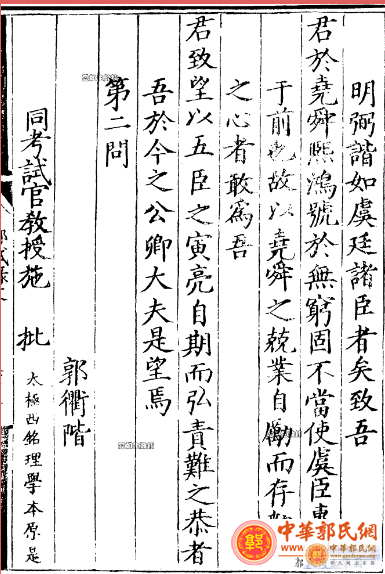 明弼諧如虞廷諸臣者矣致吾
君於堯舜熙鴻號於無窮固不當使虞臣專
于前也故以堯舜之兢業自勵而存
之心者敢爲吾
君致望以五臣之寅亮自期而弘責難之恭者
吾於今之公卿大夫是望焉
第二問
郭衢階
同考試官教授施 批 太極西銘理學本原是
中華郭氏網